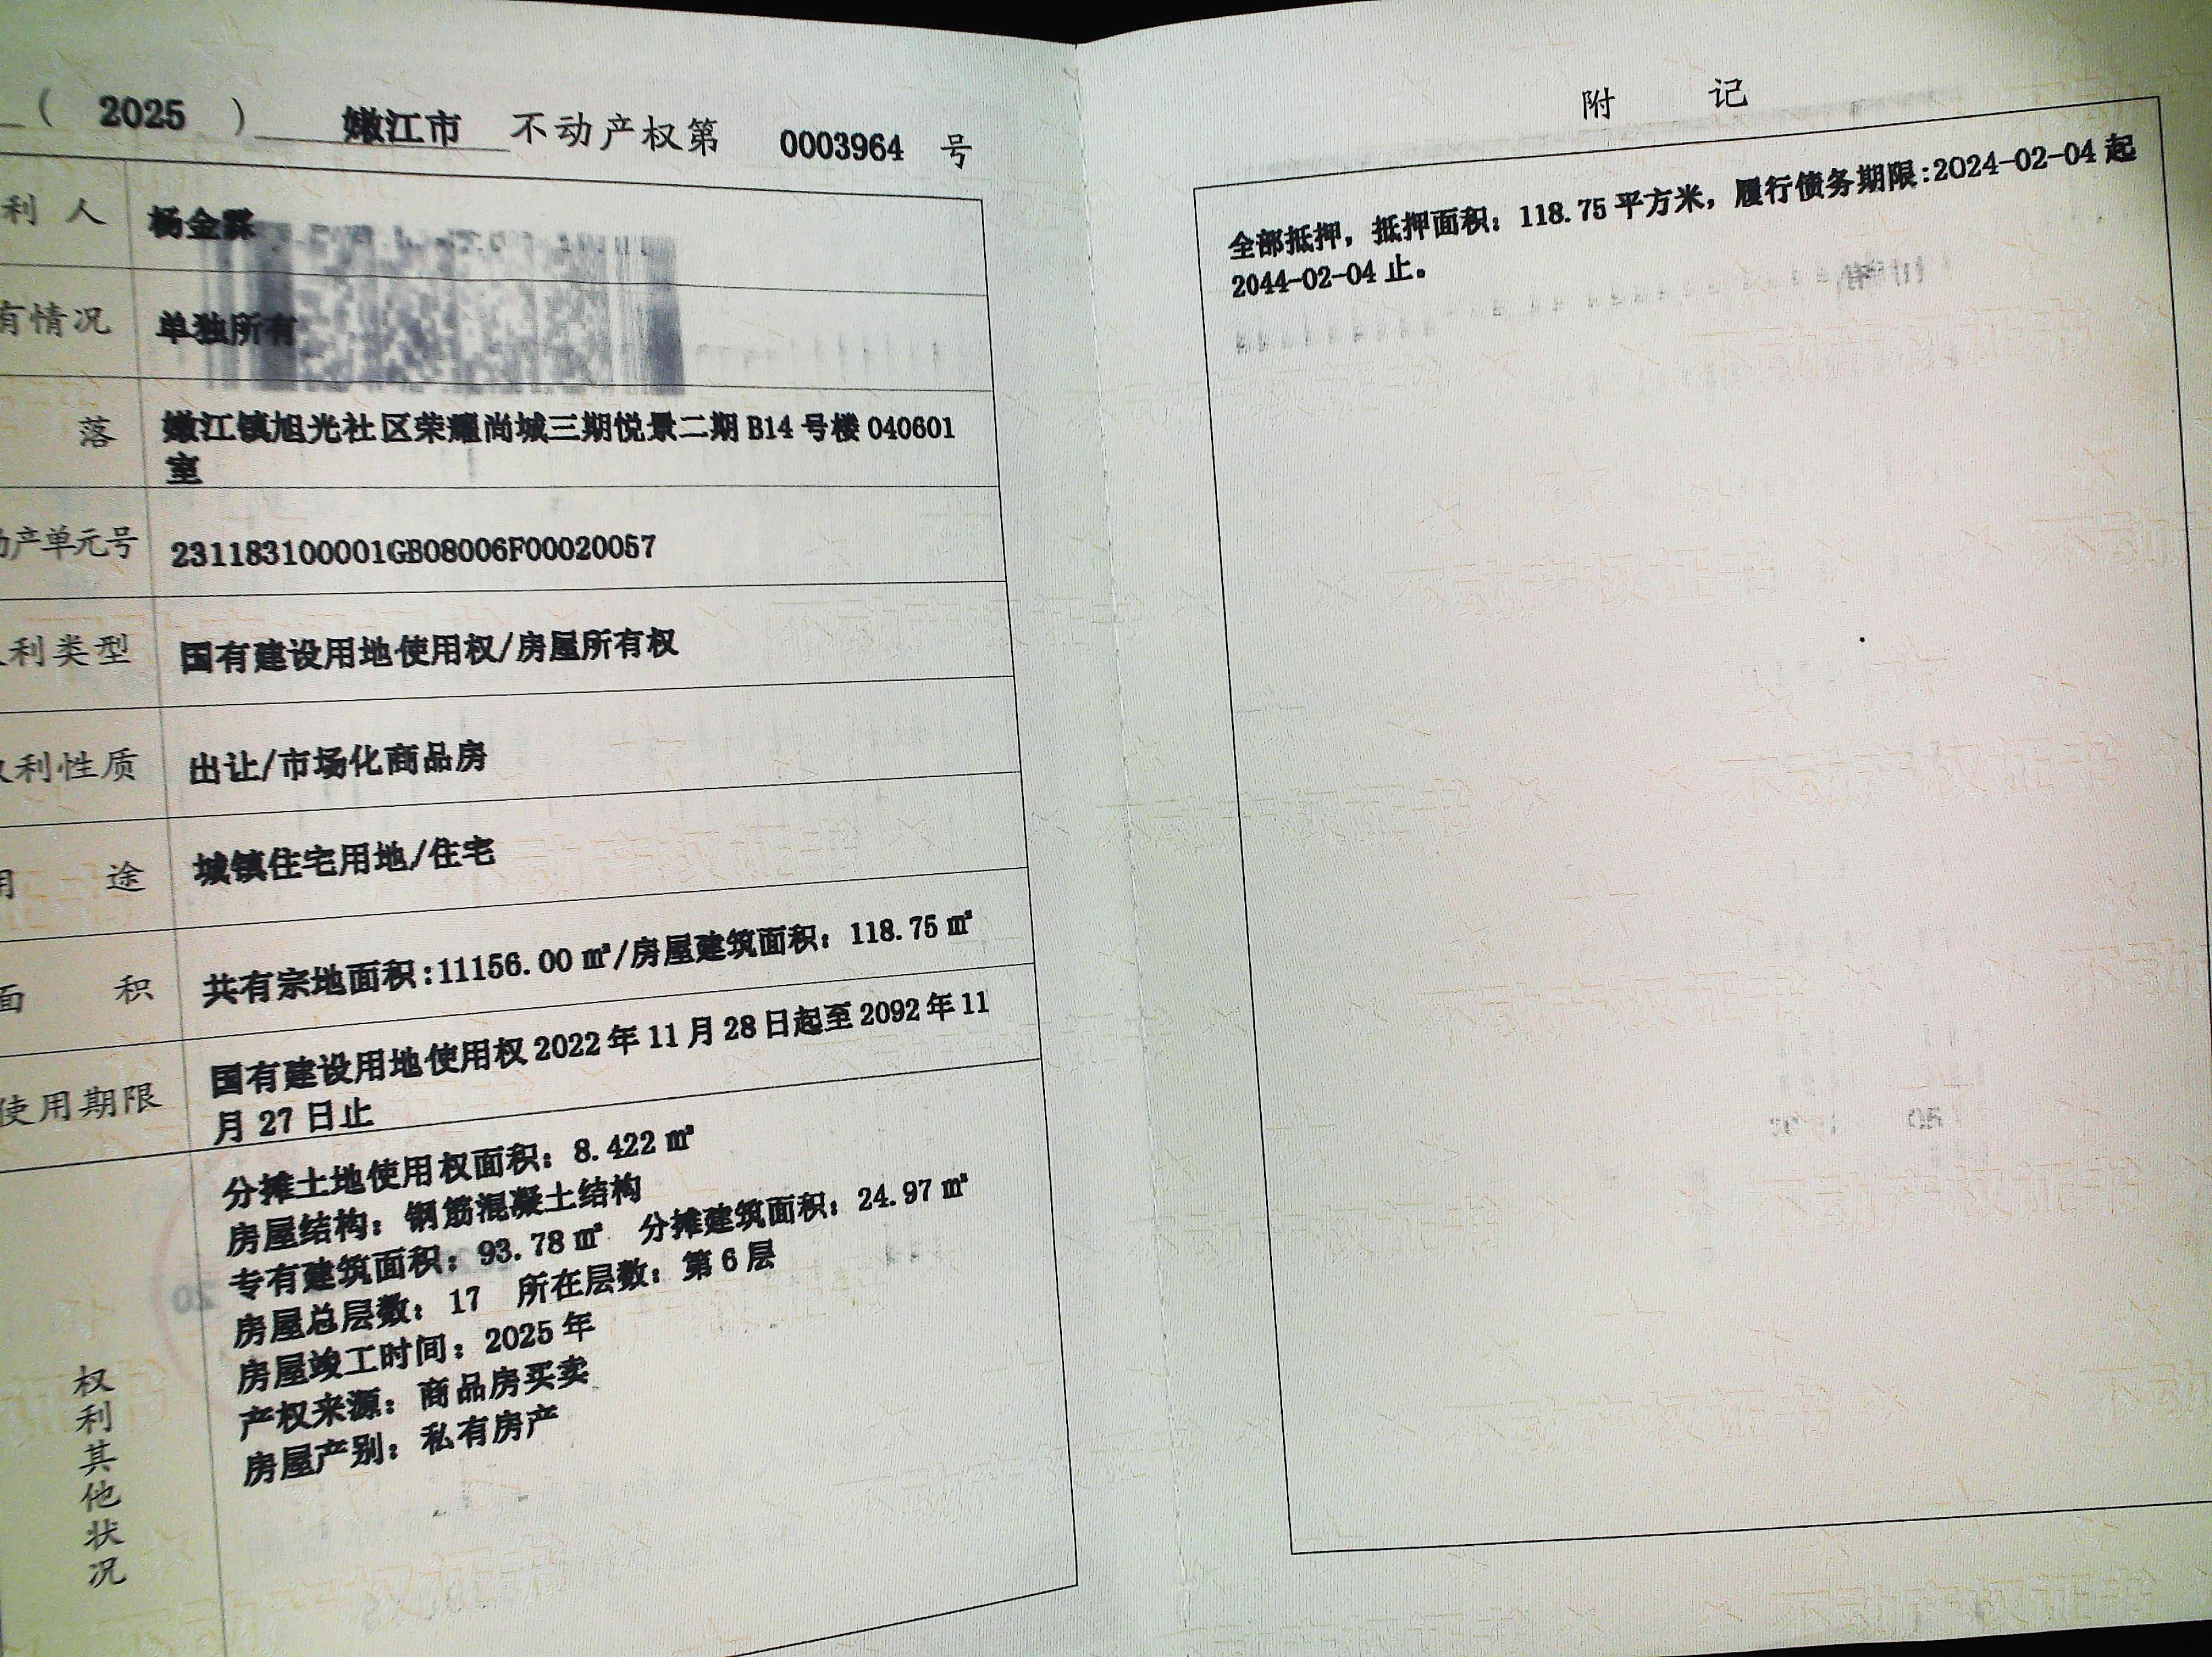 ( 2025 ) 嫩江市 不动产权第 0003964 号
利人 杨金霖
有情况 单独所有
落 嫩江镇旭光社区荣耀尚城三期悦景二期 B14 号楼 040601
室
产单元号 231183100001GB08006F00020057
利类型 国有建设用地使用权/房屋所有权
利性质 出让/市场化商品房
用途 城镇住宅用地/住宅
面积 共有宗地面积:11156.00 ㎡/房屋建筑面积：118.75 ㎡
使用期限 国有建设用地使用权 2022 年 11 月 28 日起至 2092 年 11
月 27 日止
权利其他状况
分摊土地使用权面积：8.422 ㎡
房屋结构：钢筋混凝土结构
专有建筑面积：93.78 ㎡ 分摊建筑面积：24.97 ㎡
房屋总层数：17 所在层数：第 6 层
房屋竣工时间：2025 年
产权来源：商品房买卖
房屋产别：私有房产
附记
全部抵押，抵押面积：118.75 平方米，履行债务期限:2024-02-04 起
2044-02-04 止。